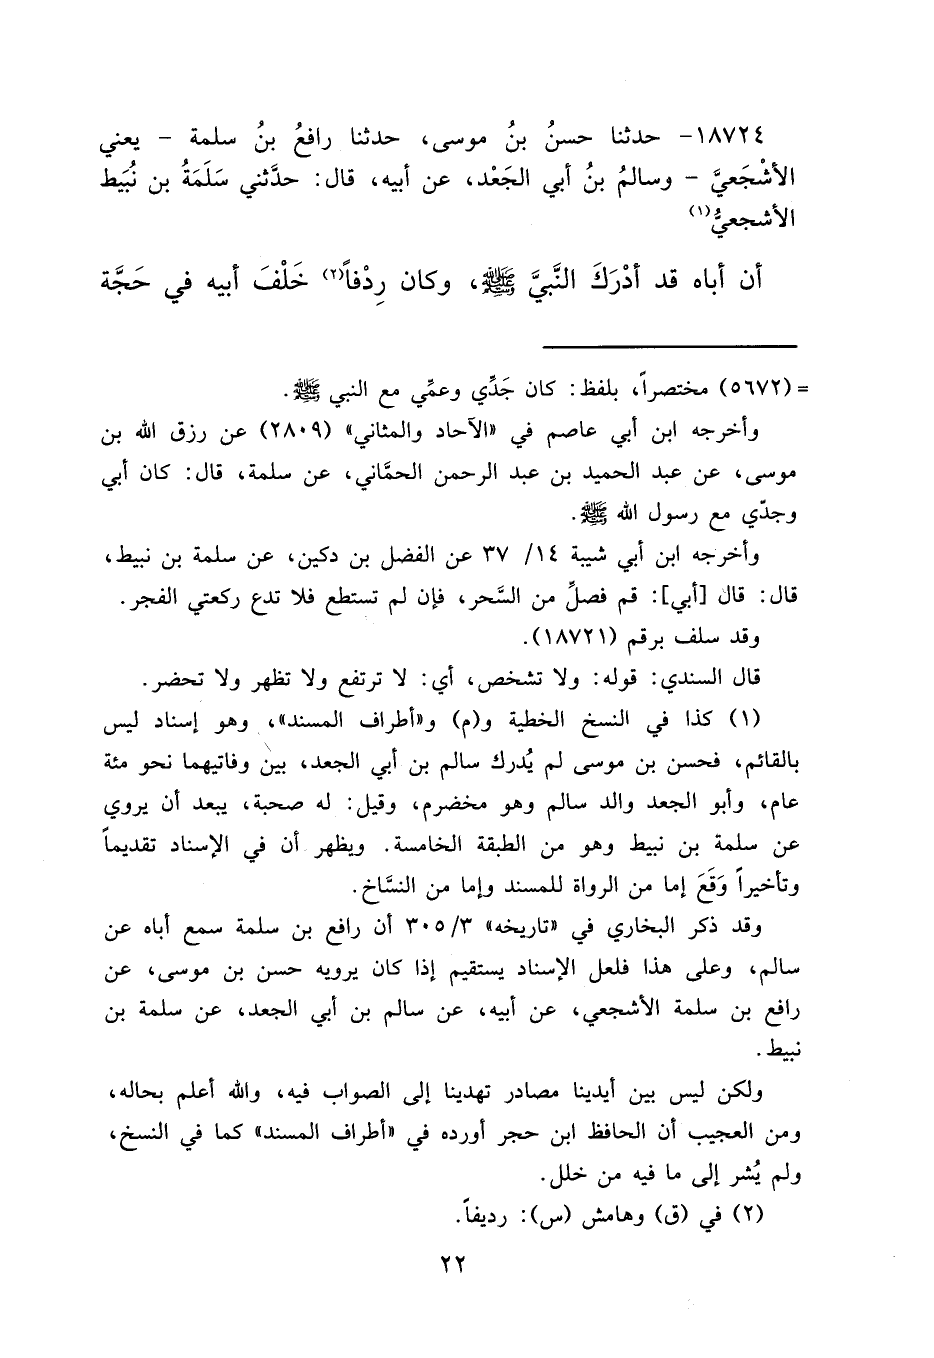 ١٨٧٢٤- حدثنا حسنُ بنُ موسى، حدثنا رافعُ بنُ سلمة - يعني
الأشْجَعيَّ - وسالمُ بنُ أبي الجَعْد، عن أبيه، قال: حدَّثني سَلَمَةُ بن نُبَيط
الأشجعيُّ(١)
أن أباه قد أدْرَكَ النَّبيَّ ﷺ، وكان رِدْفاً(٢) خَلْفَ أبيه في حَجَّة
= (٥٦٧٢) مختصراً، بلفظ: كان جَدِّي وعمِّي مع النبي ﷺ.
وأخرجه ابن أبي عاصم في «الآحاد والمثاني» (٢٨٠٩) عن رزق الله بن
موسى، عن عبد الحميد بن عبد الرحمن الحمَّاني، عن سلمة، قال: كان أبي
وجدّي مع رسول الله ﷺ.
وأخرجه ابن أبي شيبة ١٤/ ٣٧ عن الفضل بن دكين، عن سلمة بن نبيط،
قال: قال [أبي]: قم فصلِّ من السَّحر، فإن لم تستطع فلا تدع ركعتي الفجر.
وقد سلف برقم (١٨٧٢١).
قال السندي: قوله: ولا تشخص، أي: لا ترتفع ولا تظهر ولا تحضر.
(١) كذا في النسخ الخطية و(م) و«أطراف المسند»، وهو إسناد ليس
بالقائم، فحسن بن موسى لم يُدرك سالم بن أبي الجعد، بين وفاتيهما نحو مئة
عام، وأبو الجعد والد سالم وهو مخضرم، وقيل: له صحبة، يبعد أن يروي
عن سلمة بن نبيط وهو من الطبقة الخامسة. ويظهر أن في الإسناد تقديماً
وتأخيراً وَقَعَ إما من الرواة للمسند وإما من النسَّاخ.
وقد ذكر البخاري في «تاريخه» ٣٠٥/٣ أن رافع بن سلمة سمع أباه عن
سالم، وعلى هذا فلعل الإسناد يستقيم إذا كان يرويه حسن بن موسى، عن
رافع بن سلمة الأشجعي، عن أبيه، عن سالم بن أبي الجعد، عن سلمة بن
نبيط.
ولكن ليس بين أيدينا مصادر تهدينا إلى الصواب فيه، والله أعلم بحاله،
ومن العجيب أن الحافظ ابن حجر أورده في «أطراف المسند» كما في النسخ،
ولم يُشر إلى ما فيه من خلل.
(٢) في (ق) وهامش (س): رديفاً.
٢٢